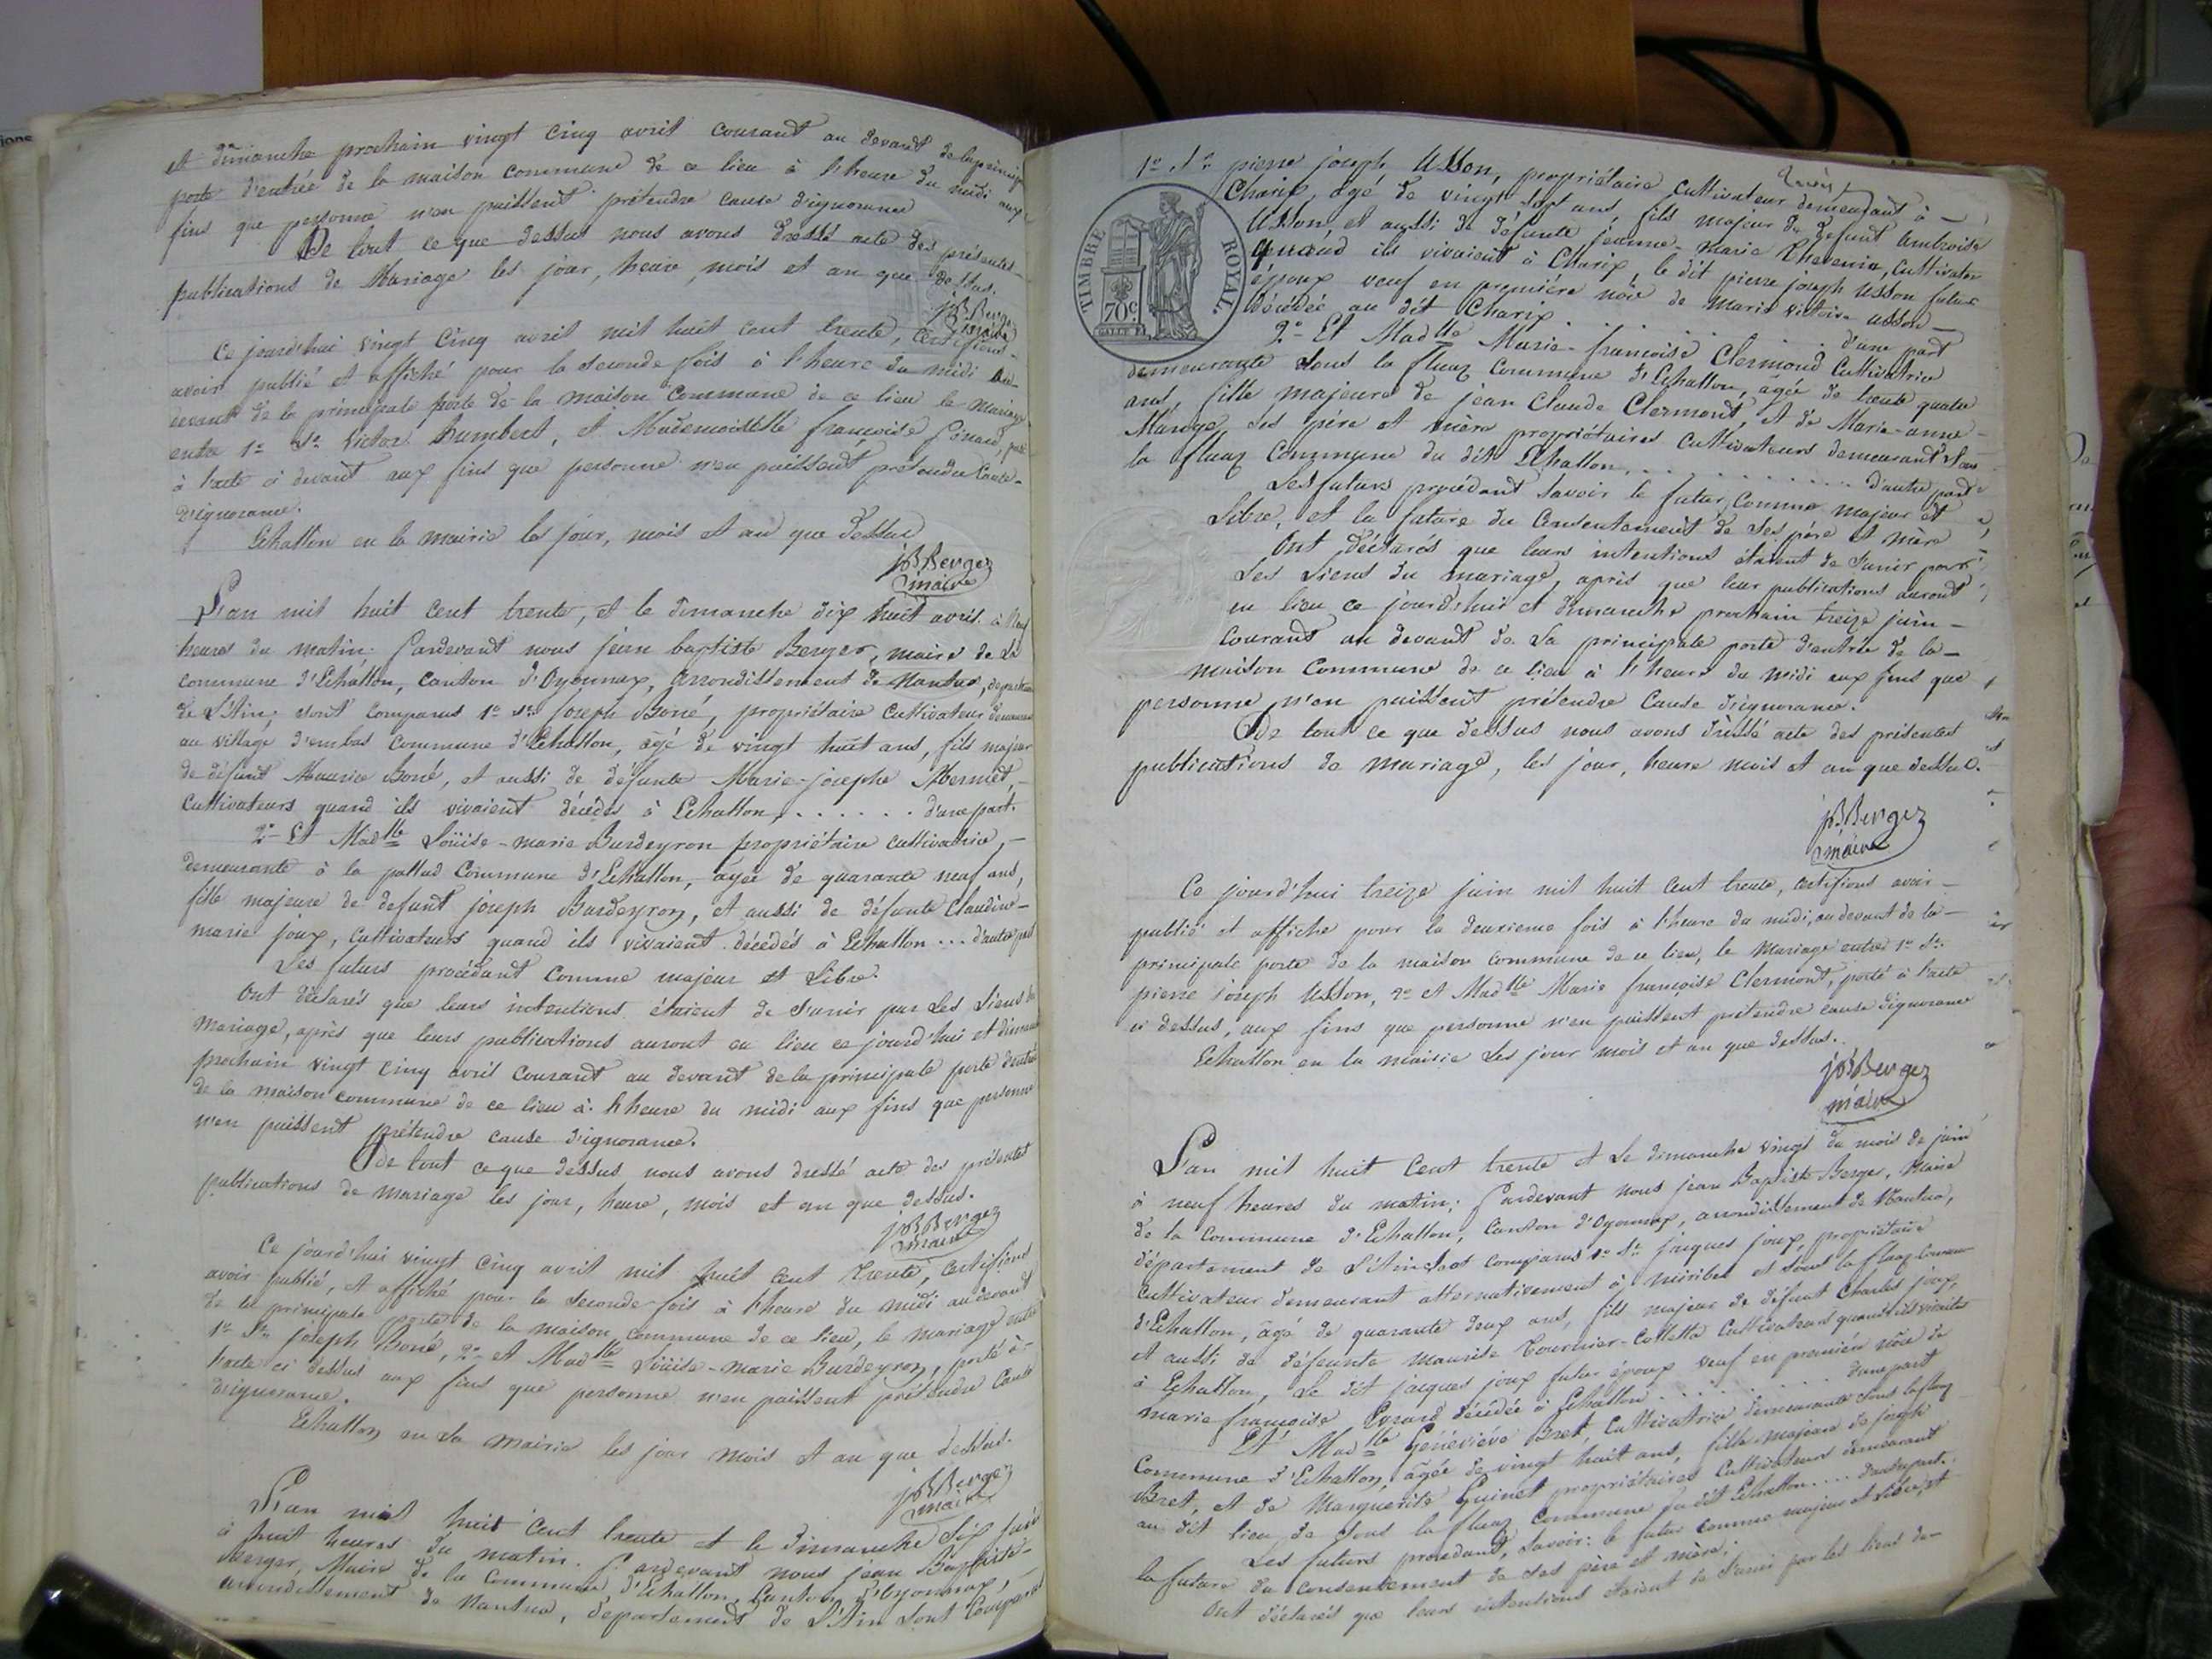 et dimanche prochain vingt cinq avril courant au devant de la princip
porte d'entrée de la maison commune de ce lieu à l'heure du midi aux
fins que personne n'en puissent prétendre cause d'ignorance
De tout ce que dessus nous avons dressé acte des présentes
publications de Mariage les jour, heure, mois et an que dessus.
JBBerger
maire
Ce jourd'hui vingt cinq avril mil huit cent trente, certifions
avoir publié et affiché pour la seconde fois à l'heure du midi au
devant de la principale porte de la maison commune de ce lieu le mariage
entre 1º Sr. Victor humbert, et Mademoiselle françoise
à l'acte ci devant aux fins que personne n'en puissent prétendre cause
d'ignorance.
Echallon en la mairie les jour, mois et an que dessus
JBBerger
maire
L'an mil huit cent trente, et le dimanche dix huit avril à
heures du matin. Pardevant nous jean baptiste Berger, maire de la
commune d'Echallon, canton d'Oyonnax, arrondissement de Nantua,
de L'Ain, sont comparus 1º Sr. joseph Boné, propriétaire cultivateur
au village d'embas commune d'Echallon, agé de vingt huit ans, fils majeur
de défunt Maurice Boné, et aussi de défunte Marie-josephe Mermet,
Cultivateurs quand ils vivaient décédés à Echallon, . . . . . . d'une part.
2º Et Madlle Loüise-marie Burdeyron propriétaire cultivatrice,
demeurante à la pallud Commune d'Echallon, agée de quarante neuf ans,
fille majeure de defunt joseph Burdeyron, et aussi de défunte Claudine
marie joux, cultivateurs quand ils vivaient décédés à Echallon ... d'autre part
Les futurs procédant comme majeur et Libre.
Ont déclarés que leurs intentions étaient de s'unir par les Liens du
Mariage, après que leurs publications auront eu lieu ce jourd'hui et dimanche
prochain vingt cinq avril courant au devant de la principale porte d'entrée
de la maison commune de ce lieu à l'heure du midi aux fins que personne
n'en puissent prétendre cause d'ignorance.
De tout ce que dessus nous avons dressé acte des présentes
publications de mariage les jour, heure, mois et an que dessus.
JBBerger
maire
Ce jourd'hui vingt cinq avril mil huit cent trente, certifions
avoir publié, et affiché pour la seconde fois à l'heure du midi au devant
de la principale porte de la maison commune de ce lieu, le mariage entre
1º Sr. joseph Boné, 2º et Madlle Loüise-marie Burdeyron, porté à
l'acte ci dessus aux fins que personne n'en puissent prétendre cause
d'ignorance.
Echallon en la mairie les jour mois et an que dessus.
JBBerger
maire
L'an mil huit cent trente et le dimanche six juin
à huit heures du matin. Pardevant nous jean Baptiste
Berger, Maire de la Commune d'Echallon, Canton d'Oyonnax,
arrondissement de Nantua, département de L'Ain sont Comparus
1º Sr. pierre joseph Usson, propriétaire cultivateur demeurant à
Charix, agé de vingt sept ans, fils majeur de defunt Ambroise
Usson, et aussi de défunte jeanne-marie Thevenin, cultivateurs
quand ils vivaient à Charix, le dit pierre joseph Usson futur
époux veuf en première nôce de marie victoire usson
décédée au dit Charix . . . . . . . . d'une part
2º Et Madlle Marie-françoise Clermond Cultivatrice
demeurante sous la fluaz Commune d'Echallon, agée de trente quatre
ans, fille majeure de jean Claude Clermont, et de Marie-anne
ses père et mère propriétaires cultivateurs demeurant sous
la fluaz Commune du dit Echallon, . . . . . . . . . . d'autre part
Les futurs procédant savoir le futur comme majeur et
Libre, et la future du Consentement de Ses père et mère
Ont déclarés que leurs intentions étaient de s'unir par
Les Liens du mariage, après que leur publications auront
eu lieu ce jourd'hui et dimanche prochain treize juin
courant au devant de la principale porte d'entrée de la
maison Commune de ce lieu à l'heure du midi aux fins que
personne n'en puissent prétendre cause d'ignorance.
De tout ce que dessus nous avons dressé acte des présentes
publications de mariage, les jour, heure mois et an que dessus.
JBBerger
maire
Ce jourd'hui treize juin mil huit cent trente, certifions avoir
publié et affiche pour la deuxieme fois à l'heure du midi, au devant de la
principale porte de la maison commune de ce lieu, le Mariage entre 1º Sr.
pierre joseph Usson, 2º et Madlle Marie françoise Clermont, porté à l'acte
ci dessus, aux fins que personne n'en puissent prétendre cause d'ignorance
Echallon en la mairie les jour mois et an que dessus.
JBBerger
maire
L'an mil huit cent trente et le dimanche vingt du mois de juin
à neuf heures du matin; Pardevant nous jean Baptiste Berger, Maire
de la Commune d'Echallon, Canton d'Oyonnax, arrondissement de Nantua,
département de L'Ain sont comparus 1º Sr. jacques joux, propriétaire
cultivateur demeurant alternativement à miribel et sous la fluaz commune
d'Echallon, agé de quarante deux ans, fils majeur de défunt Charles joux,
et aussi de défunte maurise Tournier-Colletta Cultivateurs quand ils vivaient
à Echallon, Le dit jacques joux futur époux veuf en première nôce de
marie françoise décédée à Echallon . . . . . . . . d'une part
Et Madlle Généviéve Bret, Cultivatrice demeurante sous la fluaz
Commune d'Echallon, agée de vingt huit ans, fille majeure de joseph
Bret, et de Marguerite Guinet propriétaires Cultivateurs demeurant
au dit lieu de sous la fluaz commune du dit Echallon . . . . d'autre part.
Les futurs procédant, savoir: le futur comme majeur et Libre, et
la future du consentement de ses père et mère;
Ont déclarés que leurs intentions étaient de s'unir par les liens du
TIMBRE ROYAL
70c